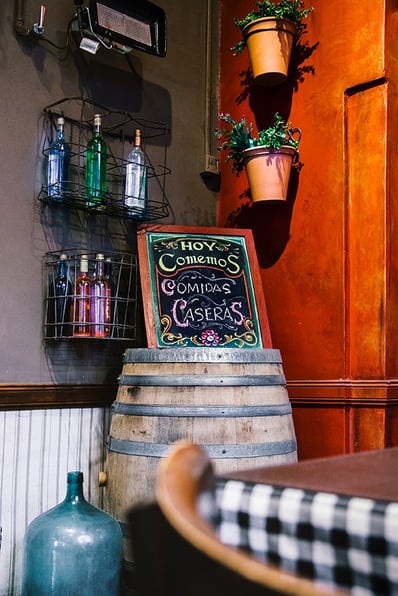 HOY
Comemos
COMIDAS
CASERAS